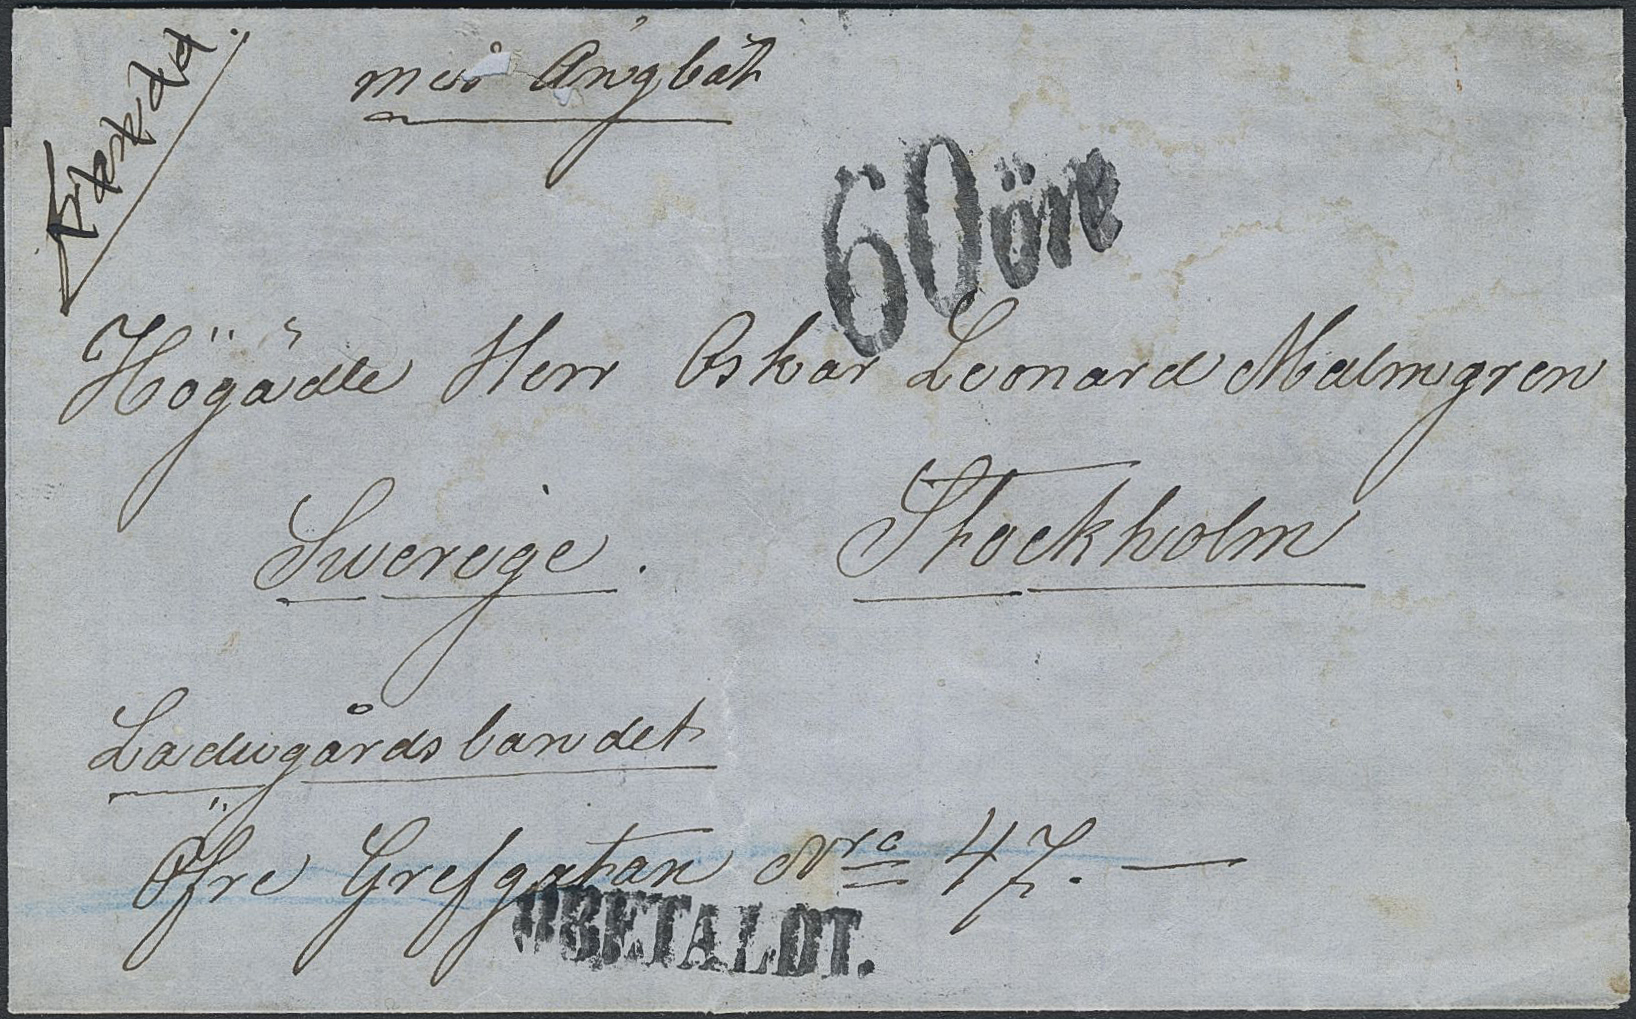 med Ångbåt
60 öre
Högädle Herr Oskar Leonard Malmgren
Stockholm
Swerige.
Ladugårdslandet
Öfre Grefgatan Nro 47. —
OBETALDT.